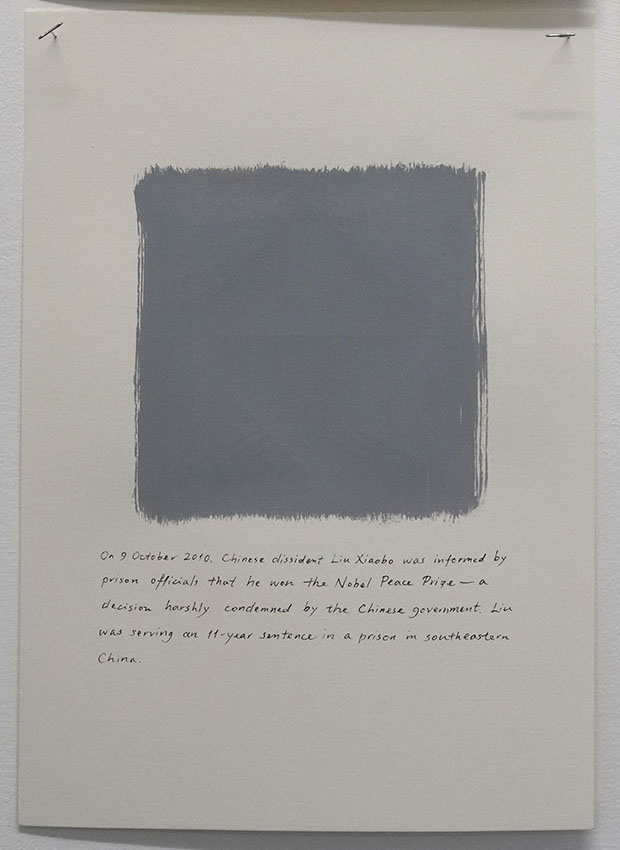 On 9 October 2010, Chinese dissident Liu Xiaobo was informed by
prison officials that he won the Nobel Peace Prize — a
decision harshly condemned by the Chinese government. Liu
was serving an 11-year sentence in a prison in southeastern
China.